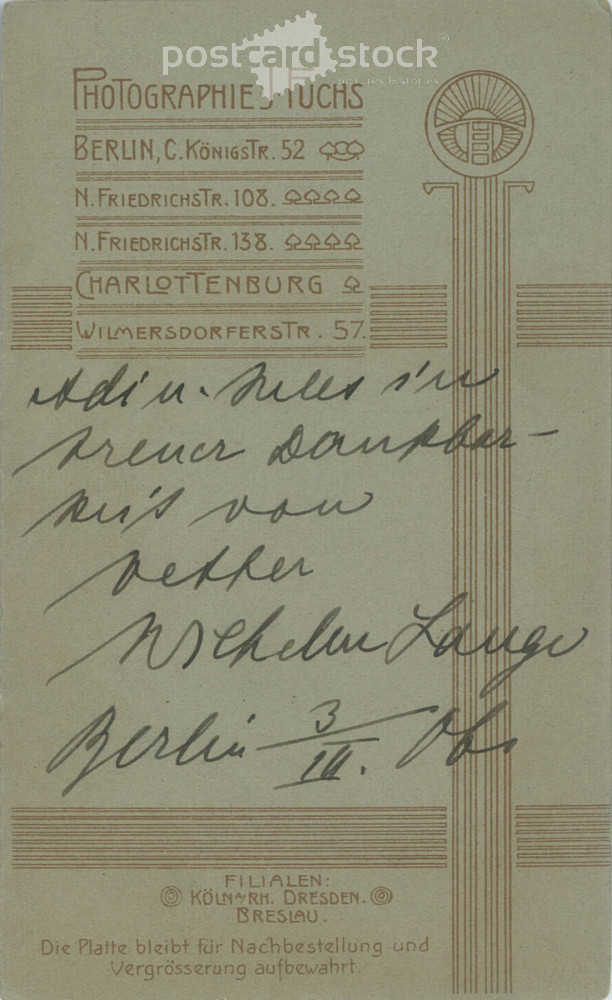 postcard stock
pictures & stories
PHOTOGRAPHIE J. FUCHS
BERLIN, C. KÖNIGSTR. 52
N. FRIEDRICHSTR. 108.
N. FRIEDRICHSTR. 138.
CHARLOTTENBURG
WILMERSDORFERSTR. 57.
Adi u. in
treuer Dankbar-
keit von
Vetter
Wilhelm Lange
Berlin 3/III. 06.
FILIALEN:
KÖLN A/RH. DRESDEN.
BRESLAU.
Die Platte bleibt für Nachbestellung und
Vergrösserung aufbewahrt.